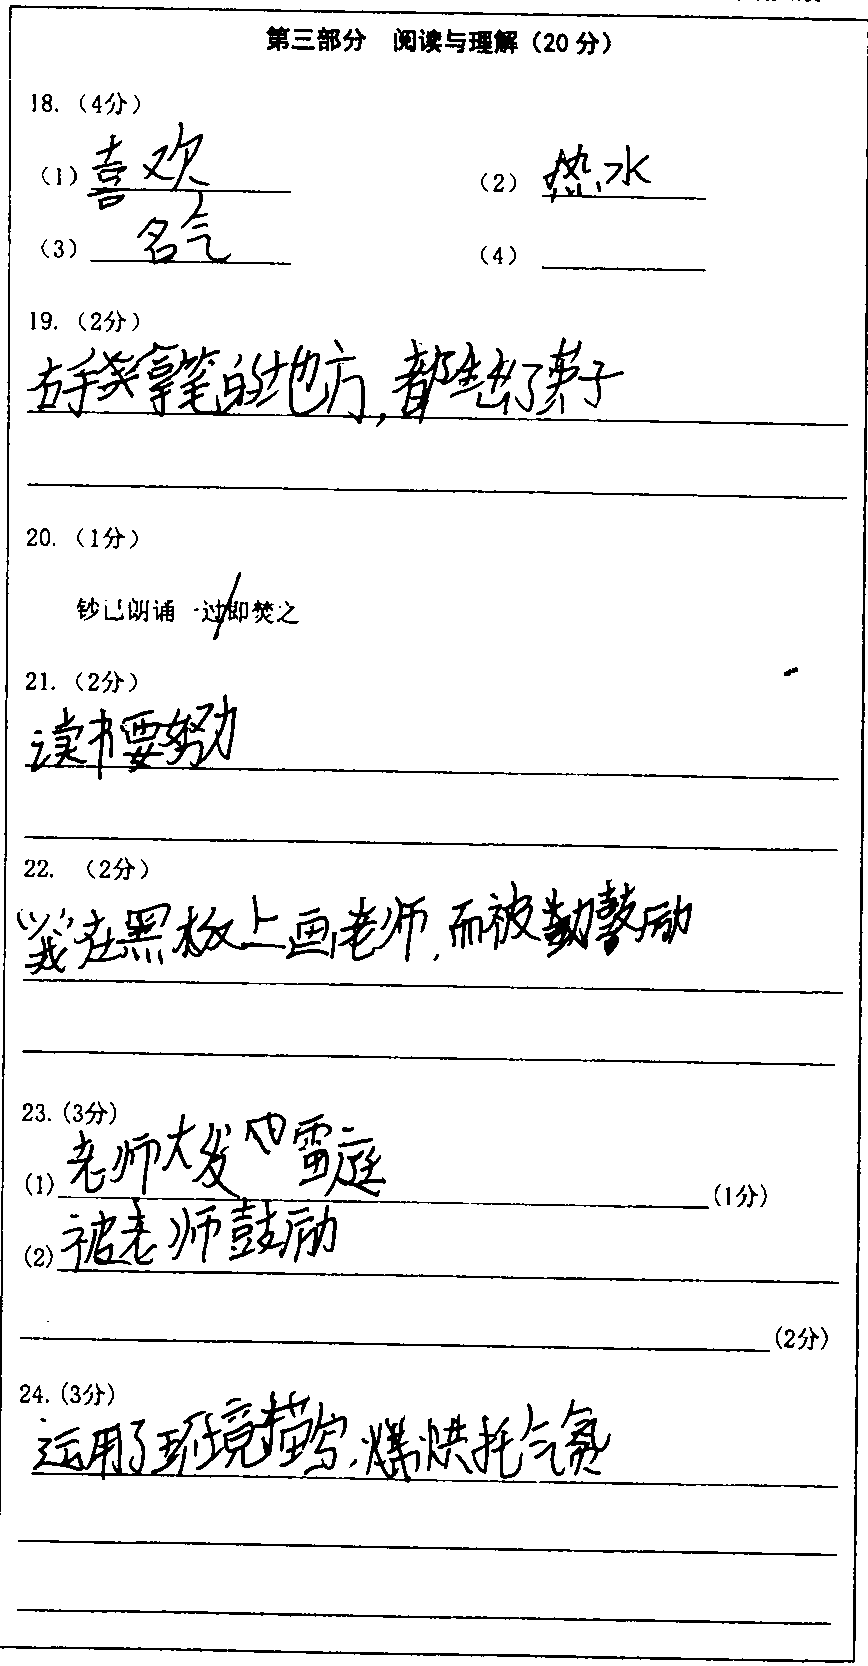 第三部分 阅读与理解（20分）
18.（4分）
（1）喜欢 （2）热水
（3）名气 （4）
19.（2分）
右手拿笔的地方，都生出了茧子
20.（1分）
钞已朗诵一过/即焚之
21.（2分）
读书要努力
22.（2分）
“我”在黑板上画老师，而被鼓励
23.(3分)
(1)老师大发雷庭 (1分)
(2)被老师鼓励
(2分)
24.(3分)
运用了环境描写，烘托气氛